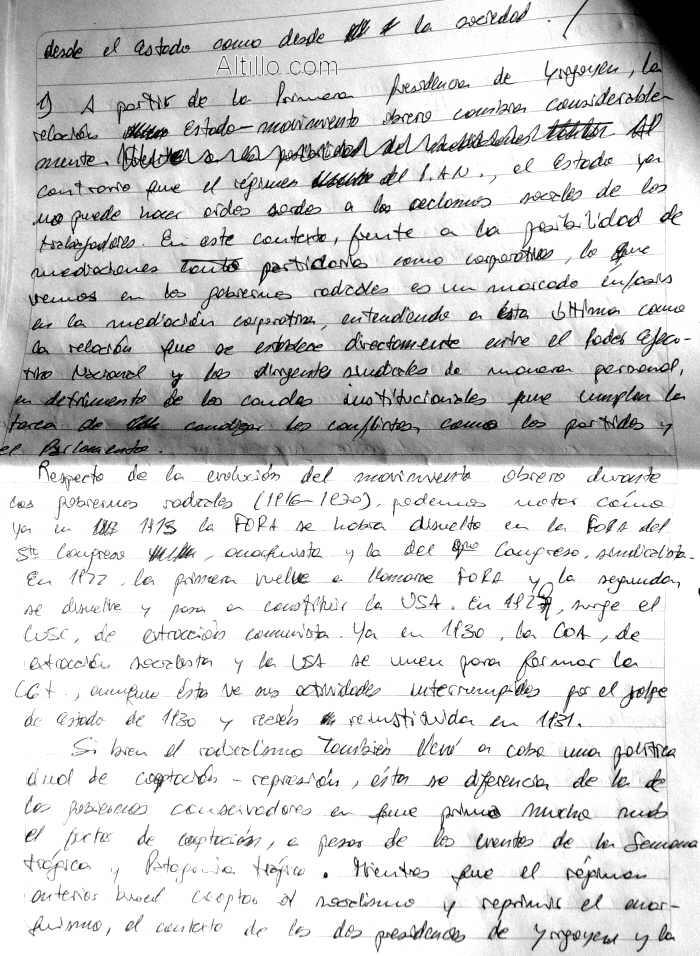 desde el Estado como desde la sociedad.
Altillo.com
1) A partir de la Primera Presidencia de Yrigoyen, la
relación Estado-movimiento obrero cambia considerable-
mente. Al
contrario que el régimen del P.A.N., el Estado ya
no puede hacer oídos sordos a los reclamos sociales de los
trabajadores. En este contexto, frente a la posibilidad de
mediaciones partidarias como corporativas, lo que
vemos en los gobiernos radicales es un marcado énfasis
en la mediación corporativa, entendiendo a ésta última como
la relación que se establece directamente entre el Poder Ejecu-
tivo Nacional y los dirigentes sindicales de manera personal,
en detrimento de los canales institucionales que cumplan la
tarea de canalizar los conflictos, como los partidos y
el Parlamento.
Respecto de la evolución del movimiento obrero durante
los gobiernos radicales (1916-1930), podemos notar cómo
ya en 1915 la FORA se había disuelto en la FORA del
5to Congreso, anarquista y la del Congreso, sindicalista.
En 1922, la primera vuelve a llamarse FORA y la segunda,
se disuelve y pasa a constituir la USA. En surge el
CUSC, de extracción comunista. Ya en 1930, la COA, de
extracción socialista y la USA se unen para formar la
CGT, aunque ésta ve sus actividades interrumpidas por el golpe
de estado de 1930 y recién restituida en 1931.
Si bien el radicalismo también llevó a cabo una política
dual de cooptación-represión, ésta se diferencia de la de
los gobiernos conservadores en que primó mucho más
el factor de cooptación, a pesar de los eventos de la Semana
trágica y Patagonia trágica. Mientras que el régimen
anterior buscó cooptar al socialismo y reprimir el anar-
quismo, el contexto de las dos presidencias de Yrigoyen y la